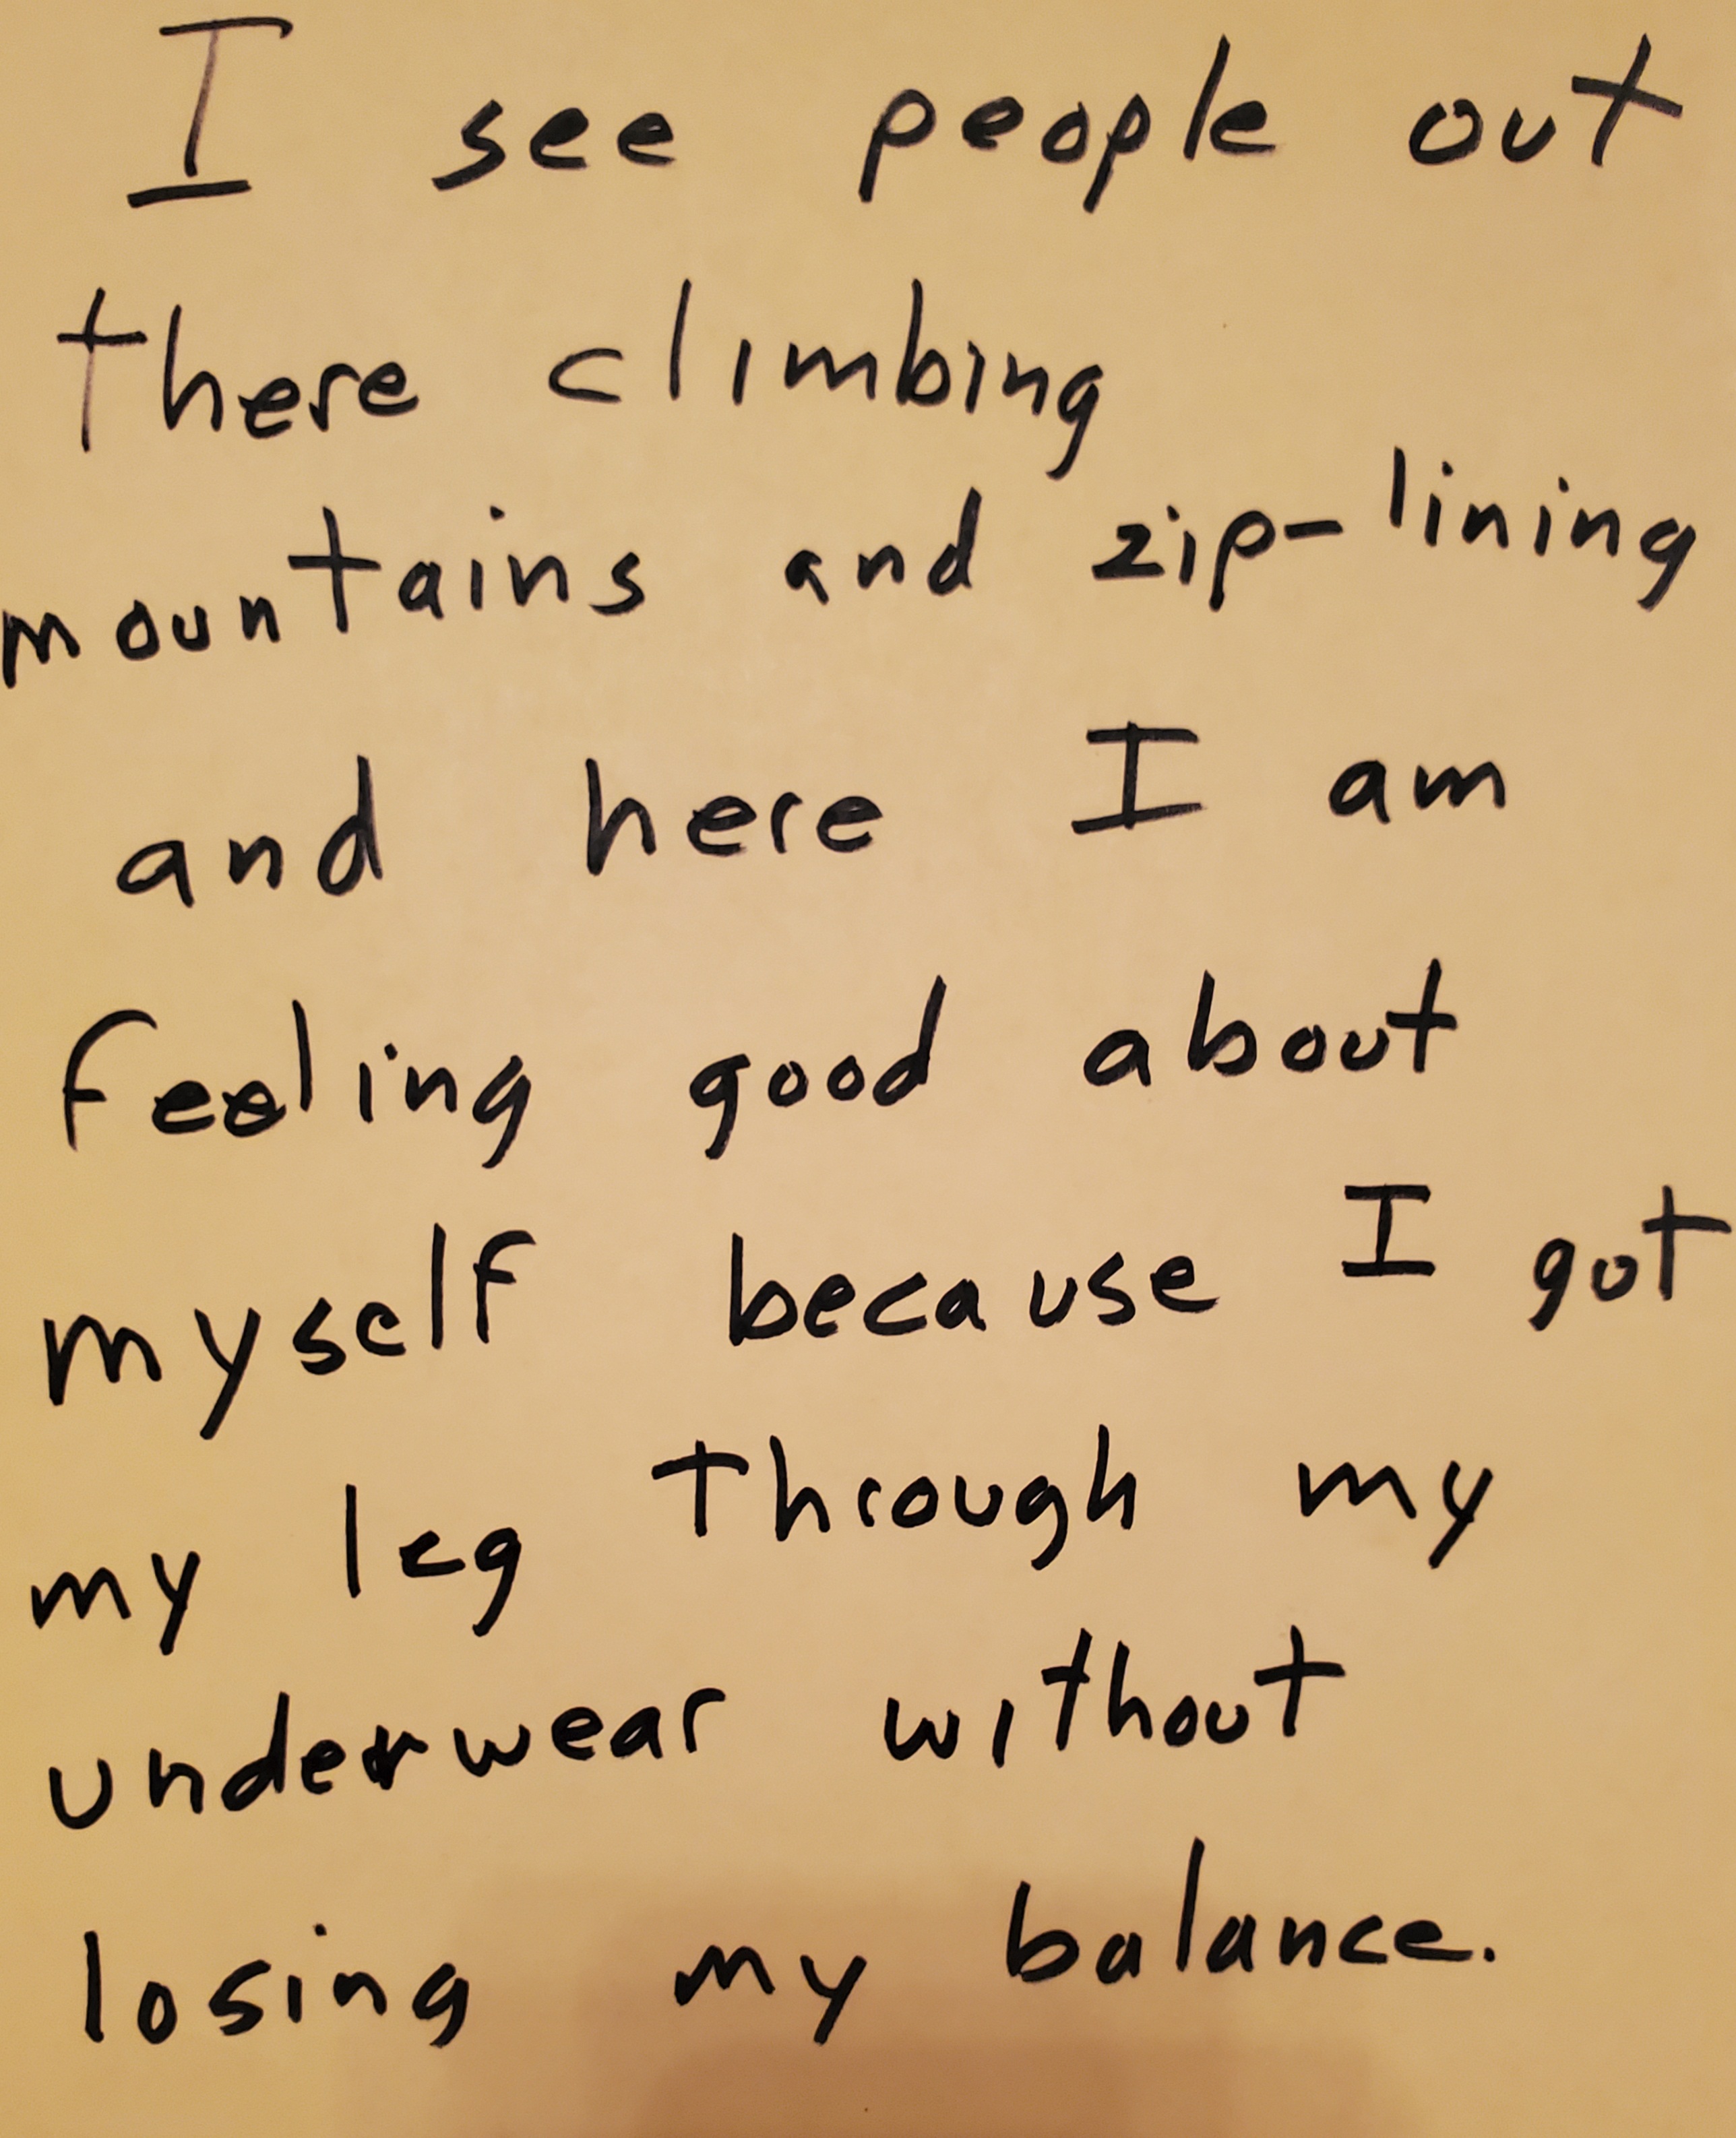 I see people out
there climbing
mountains and zip-lining
and here I am
feeling good about
myself because I got
my leg through my
underwear without
losing my balance.